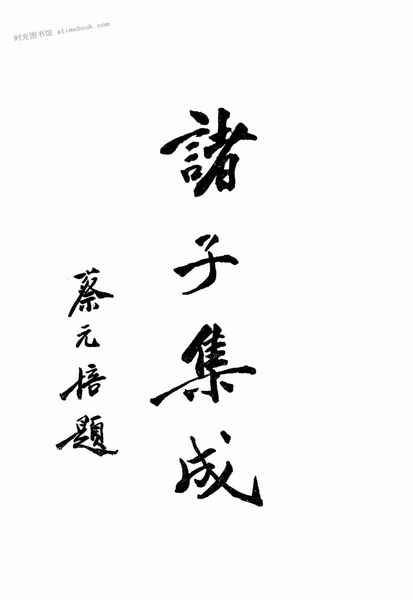 时光图书馆 atimebook.com
諸子集成
蔡元培題